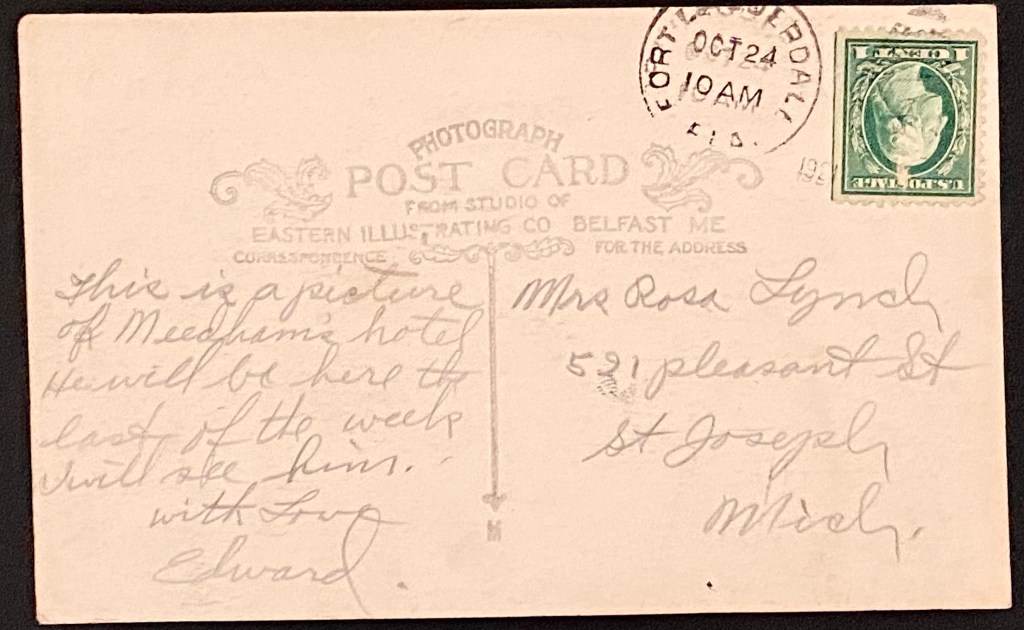 FORT LAUDERDALE
OCT 24
10 AM
FLA.
1 CENT 1
U.S. POSTAGE
PHOTOGRAPH
POST CARD
FROM STUDIO OF
EASTERN ILLUSTRATING CO BELFAST ME
CORRESPONDENCE FOR THE ADDRESS
This is a picture
of Meedham's hotel
He will be here the
last of the week
I will see him.
with Love
Edward.
Mrs Rosa Lynch
521 pleasant St
St Joseph
Mich.
M